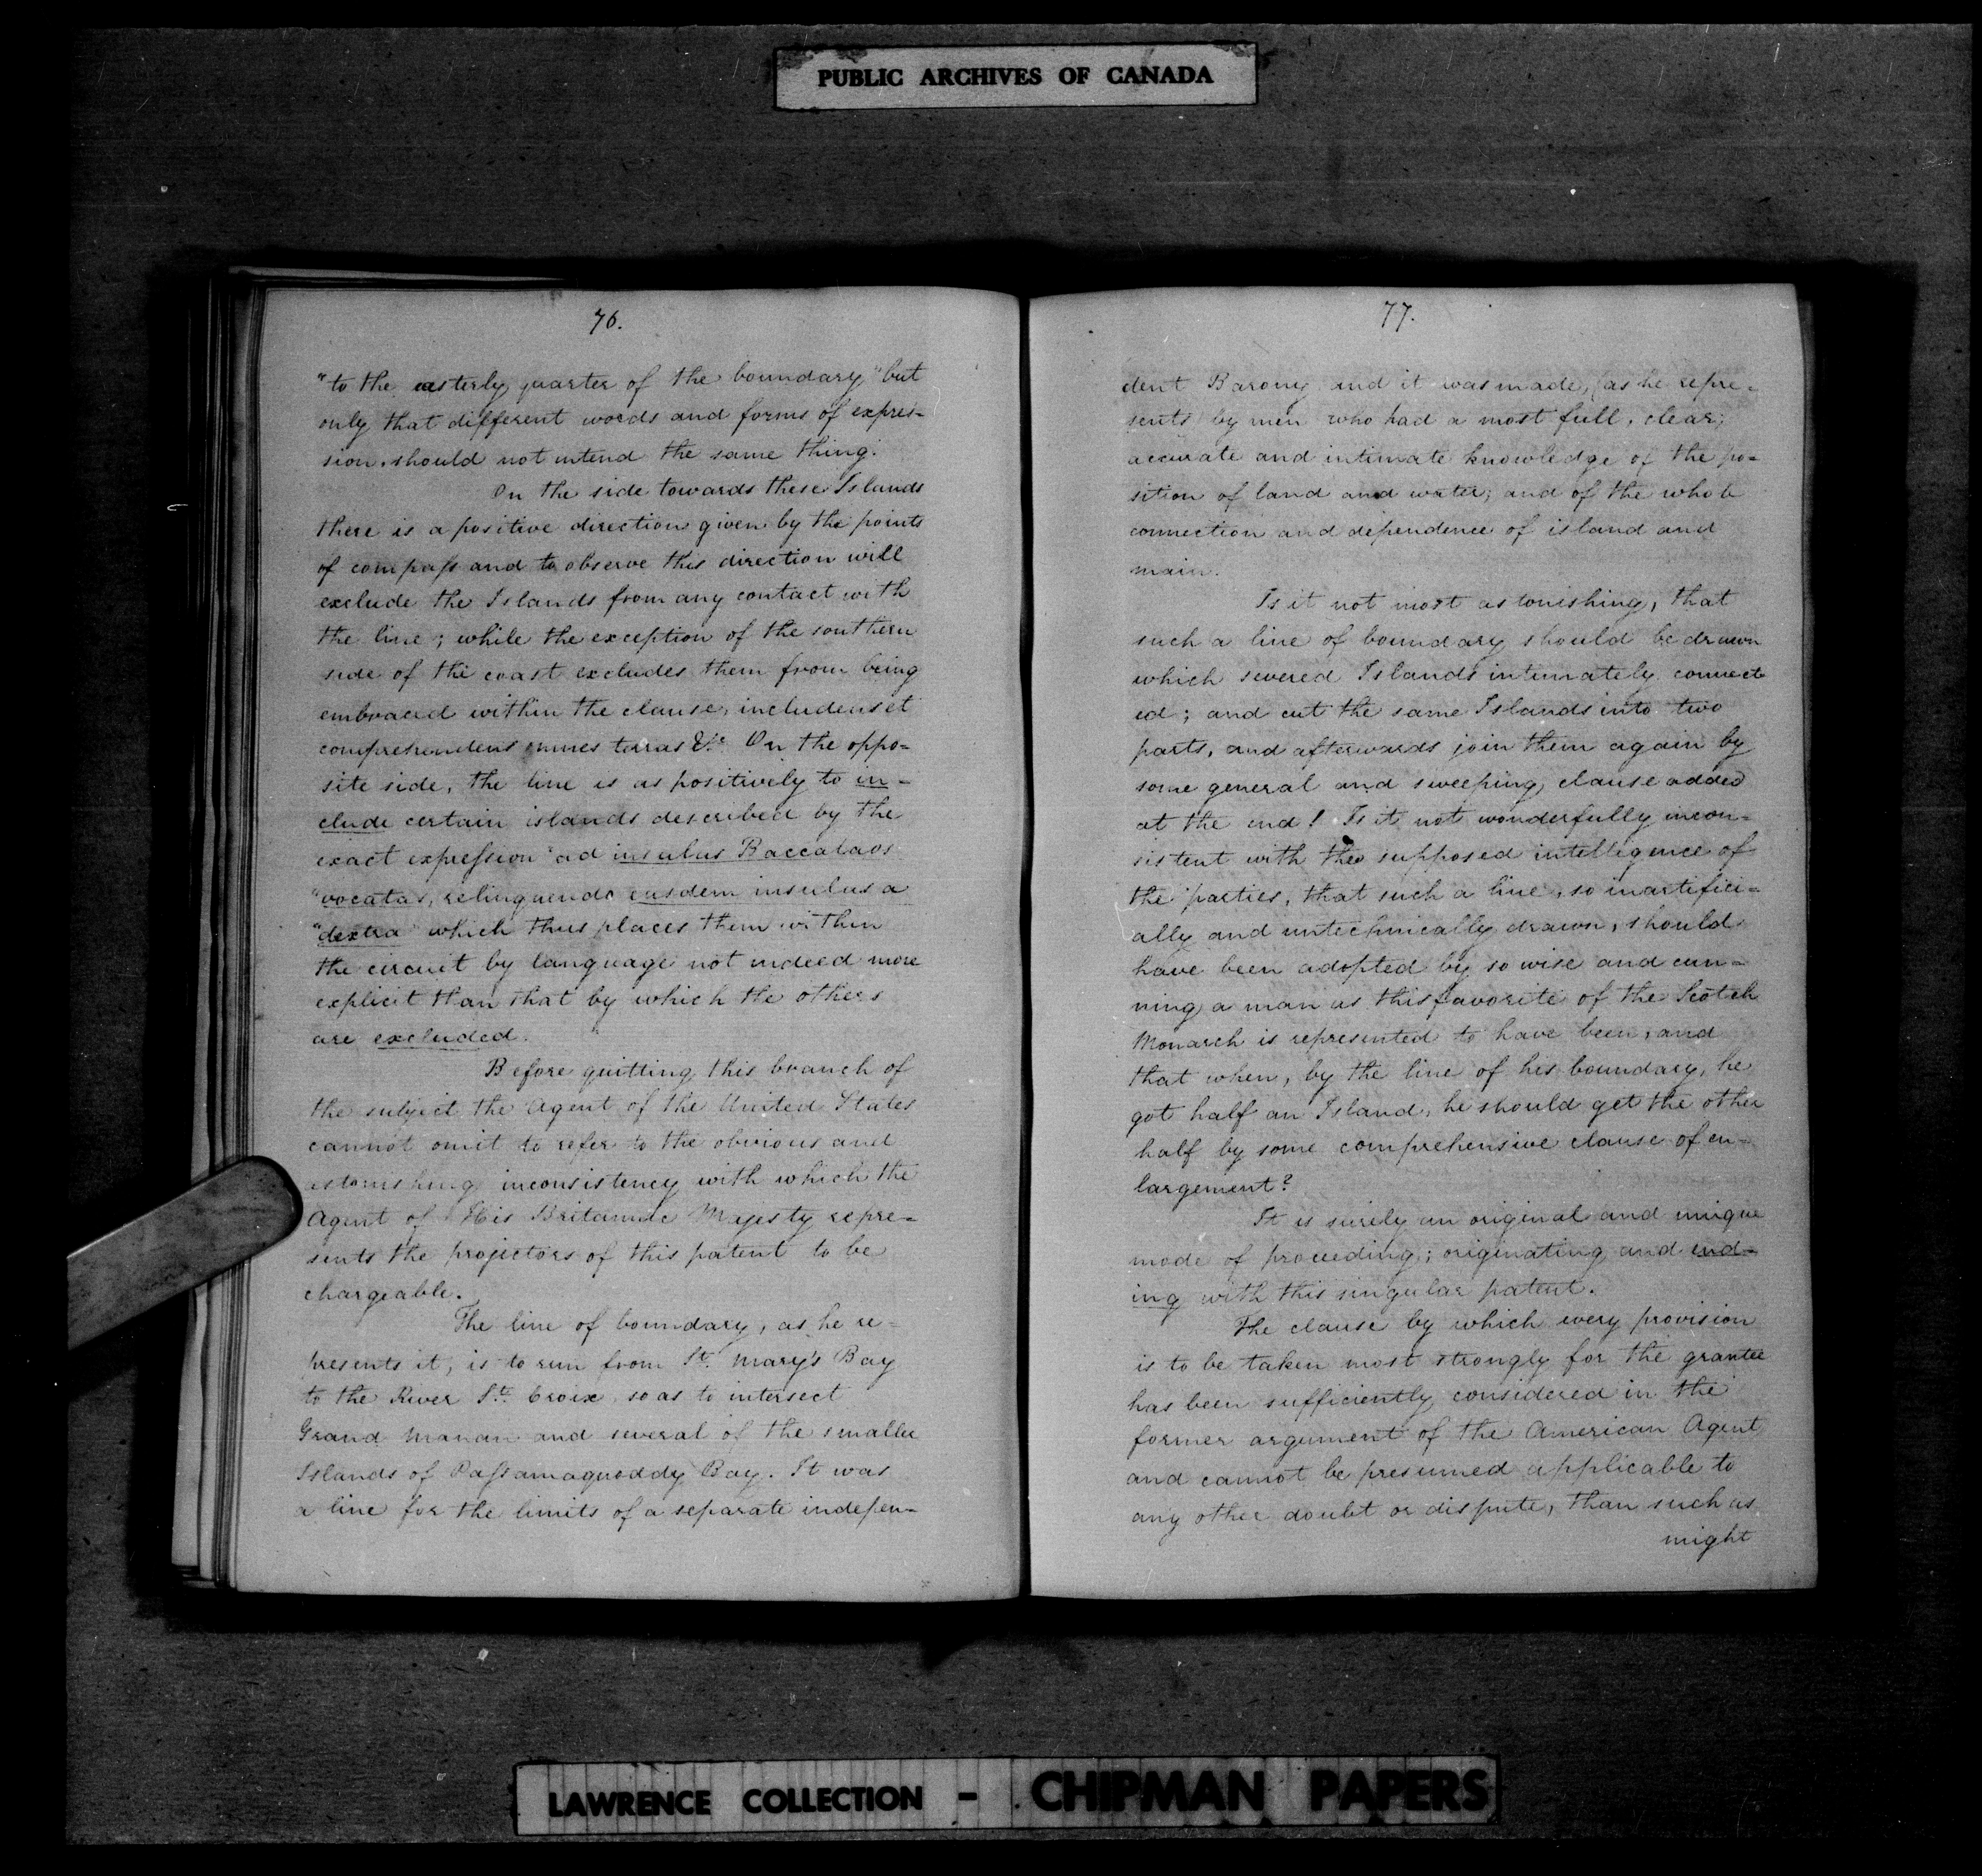 PUBLIC ARCHIVES OF CANADA
76.
"to the easterly quarter of the boundary" but
only that different words and forms of expres-
sion, should not intend the same thing.
On the side towards these Islands
there is a positive direction given by the points
of compass and to observe this direction will
exclude the Islands from any contact with
the line; while the exception of the southern
side of the coast excludes them from being
embraced within the clause, includens et
comprehendens omnes terras &c. On the oppo-
site side, the line is as positively to in-
clude certain islands described by the
exact expression "ad insulas Baccalaos
"vocatas, relinquendo easdem insulas a
"dextra" which thus places them within
the circuit by language not indeed more
explicit than that by which the others
are excluded.
Before quitting this branch of
the subject the Agent of the United States
cannot omit to refer to the obvious and
astonishing inconsistency with which the
Agent of His Britannic Majesty repre-
sents the projectors of this patent to be
chargeable.
The line of boundary, as he re-
presents it, is to run from St. Mary's Bay
to the River St. Croix so as to intersect
Grand Manan and several of the smaller
Islands of Passamaquoddy Bay. It was
a line for the limits of a separate indepen-
77.
dent Barony and it was made, (as he repre-
sents) by men who had a most full, clear,
accurate and intimate knowledge of the po-
sition of land and water; and of the whole
connection and dependence of island and
main.
Is it not most astonishing, that
such a line of boundary should be drawn
which severed Islands intimately connect
ed; and cut the same Islands into two
parts, and afterwards join them again by
some general and sweeping clause added
at the end! Is it not wonderfully incon-
sistent with the supposed intelligence of
the parties, that such a line, so inartifici-
ally and untechnically drawn, should
have been adopted by so wise and cun-
ning a man as this favorite of the Scotch
Monarch is represented to have been, and
that when, by the line of his boundary, he
got half an Island, he should get the other
half by some comprehensive clause of en-
largement?
It is surely an original and unique
mode of proceeding; originating and end-
ing with this singular patent.
The clause by which every provision
is to be taken most strongly for the grantee
has been sufficiently considered in the
former argument of the American Agent
and cannot be presumed applicable to
any other doubt or dispute, than such as
might
LAWRENCE COLLECTION - CHIPMAN PAPERS